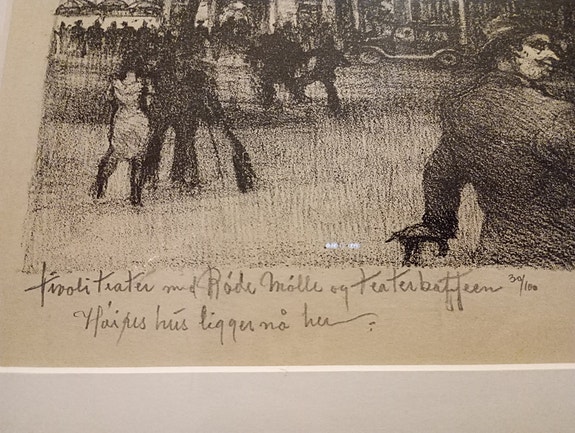 tivoli teater med Røde Mølle og teaterkaffeen 30/100
hus ligger nå her